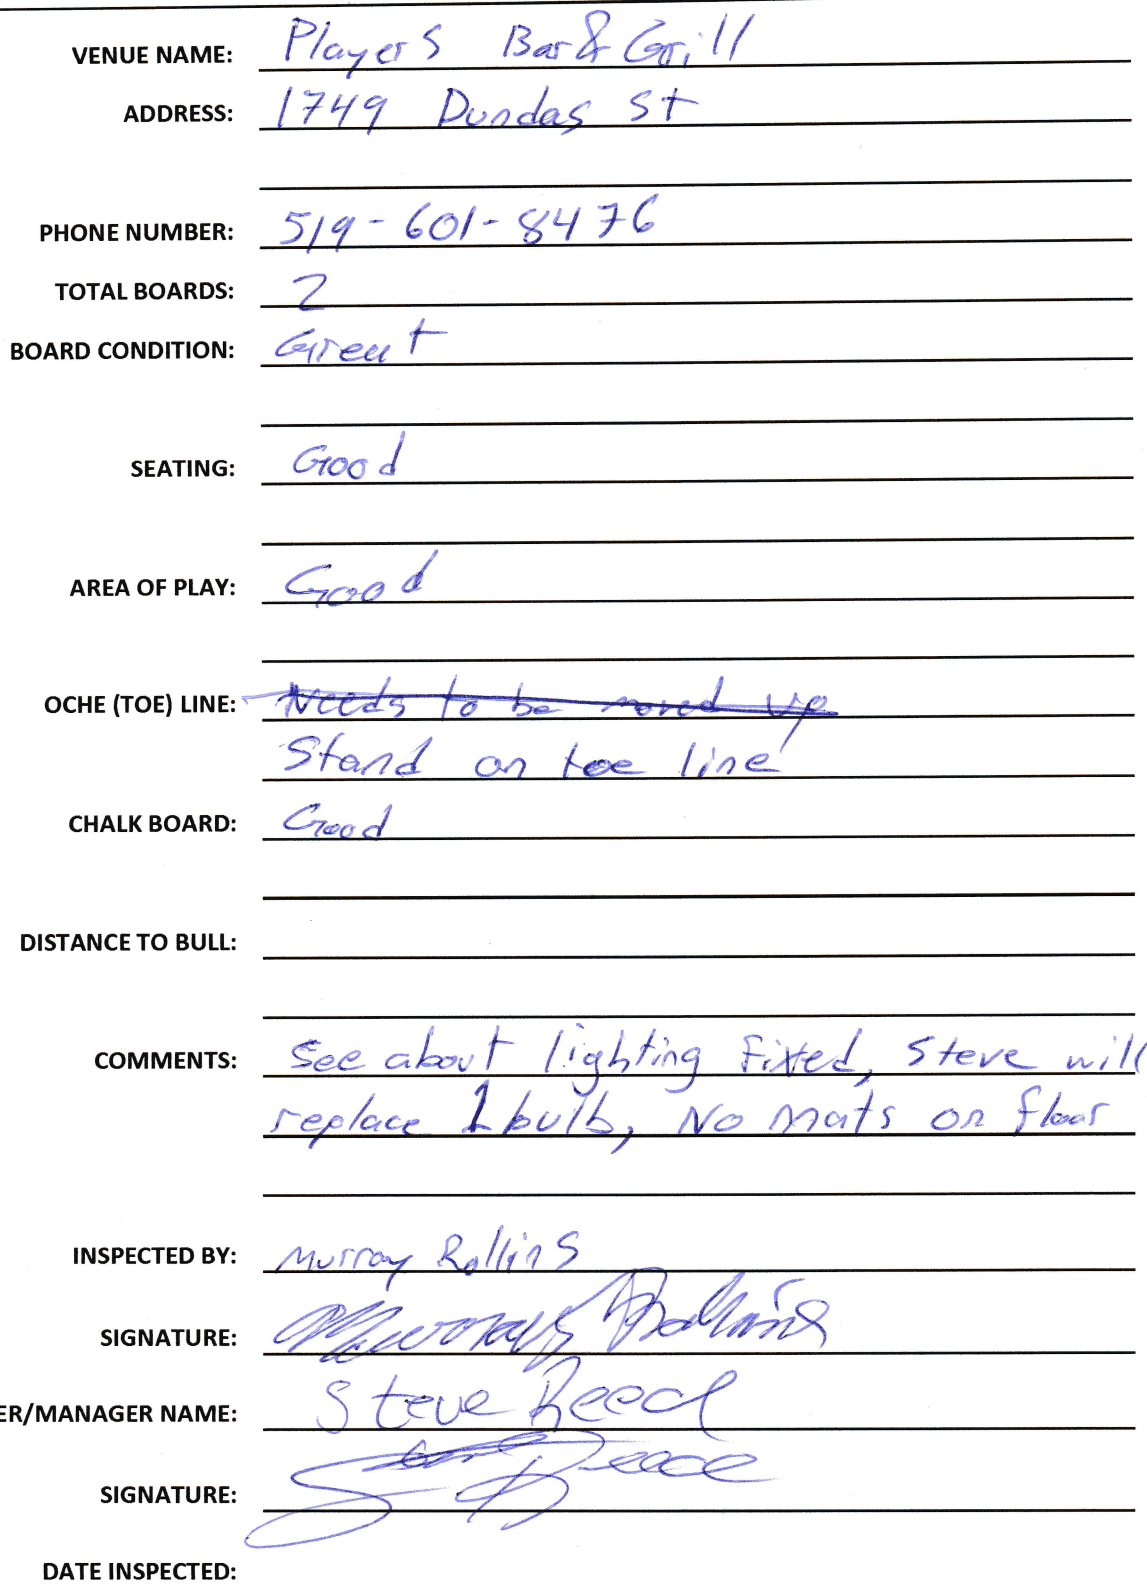 VENUE NAME: Players Bar & Grill
ADDRESS: 1749 Dundas St
PHONE NUMBER: 519-601-8476
TOTAL BOARDS: 2
BOARD CONDITION: Great
SEATING: Good
AREA OF PLAY: Good
OCHE (TOE) LINE: Needs to be moved up
Stand on toe line
CHALK BOARD: Good
DISTANCE TO BULL:
COMMENTS: See about lighting fixted, Steve will
replace 1 bulb, No mats on floor
INSPECTED BY: Murray Rollins
SIGNATURE: Murray Rollins
ER/MANAGER NAME: Steve Reed
SIGNATURE:
DATE INSPECTED: